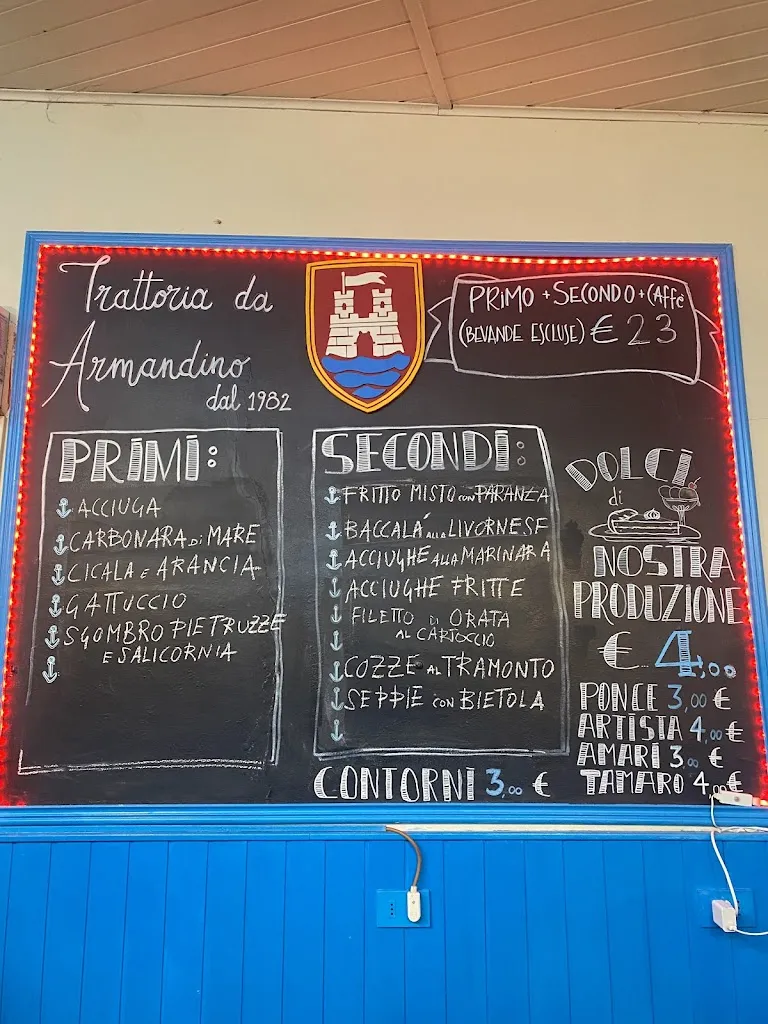 Trattoria da
Armandino
dal 1982
PRIMO + SECONDO + CAffè
(BEVANDE ESCLUSE) € 23
PRIMI:
ACCIUGA
CARBONARA di MARE
CICALA e ARANCIA
GATTUCCIO
SGOMBRO PIETRUZZE
E SALICORNIA
SECONDI:
FRITTO MISTO con PARANZA
BACCALÀ ALLA LIVORNESE
ACCIUGHE ALLA MARINARA
ACCIUGHE FRITTE
FILETTO di ORATA
AL CARTOCCIO
COZZE AL TRAMONTO
SEPPIE con BIETOLA
CONTORNI 3,00 €
DOLCI
di
NOSTRA
PRODUZIONE
€ 4,00
PONCE 3,00 €
ARTISTA 4,00 €
AMARI 3,00 €
TAMARO 4,00 €